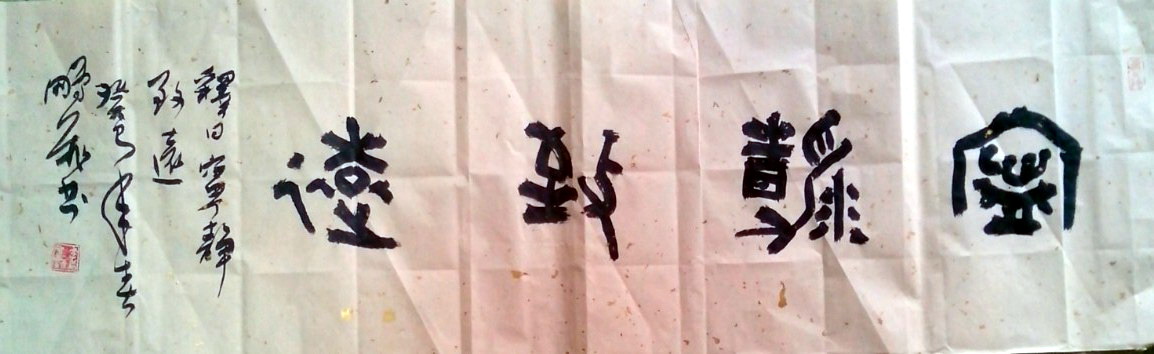 寧靜致遠
釋曰寧靜
致遠
癸巳年春
鵬書